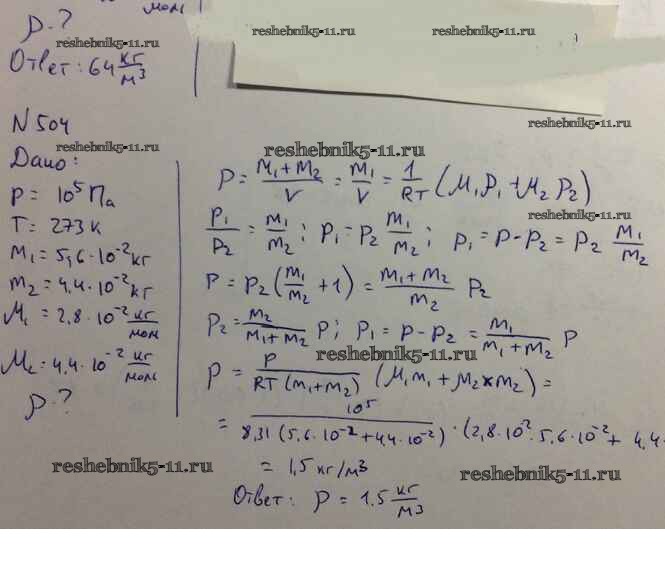 моль
ρ-?
reshebnik5-11.ru
reshebnik5-11.ru
Ответ: 64 кг/м³
N 504
reshebnik5-11.ru
reshebnik5-11.ru
Дано:
reshebnik5-11.ru
P = 10⁵ Па
T = 273 К
m₁ = 5,6·10⁻² кг
m₂ = 4,4·10⁻² кг
M₁ = 2,8·10⁻² кг/моль
M₂ = 4,4·10⁻² кг/моль
ρ-?
ρ = (m₁+m₂)/V = m₁/V = 1/RT (M₁P₁ + M₂P₂)
P₁/P₂ = m₁/m₂; P₁ = P₂ m₁/m₂; P₁ = P - P₂ = P₂ m₁/m₂
P = P₂ (m₁/m₂ + 1) = (m₁+m₂)/m₂ P₂
P₂ = m₂/(m₁+m₂) P; P₁ = P - P₂ = m₁/(m₁+m₂) P
reshebnik5-11.ru
ρ = P/(RT(m₁+m₂)) (M₁m₁ + M₂×m₂) =
= 10⁵/(8,31(5,6·10⁻²+4,4·10⁻²)) · (2,8·10⁻²·5,6·10⁻² + 4,4·
= 1,5 кг/м³
reshebnik5-11.ru
reshebnik5-11.ru
Ответ: ρ = 1.5 кг/м³